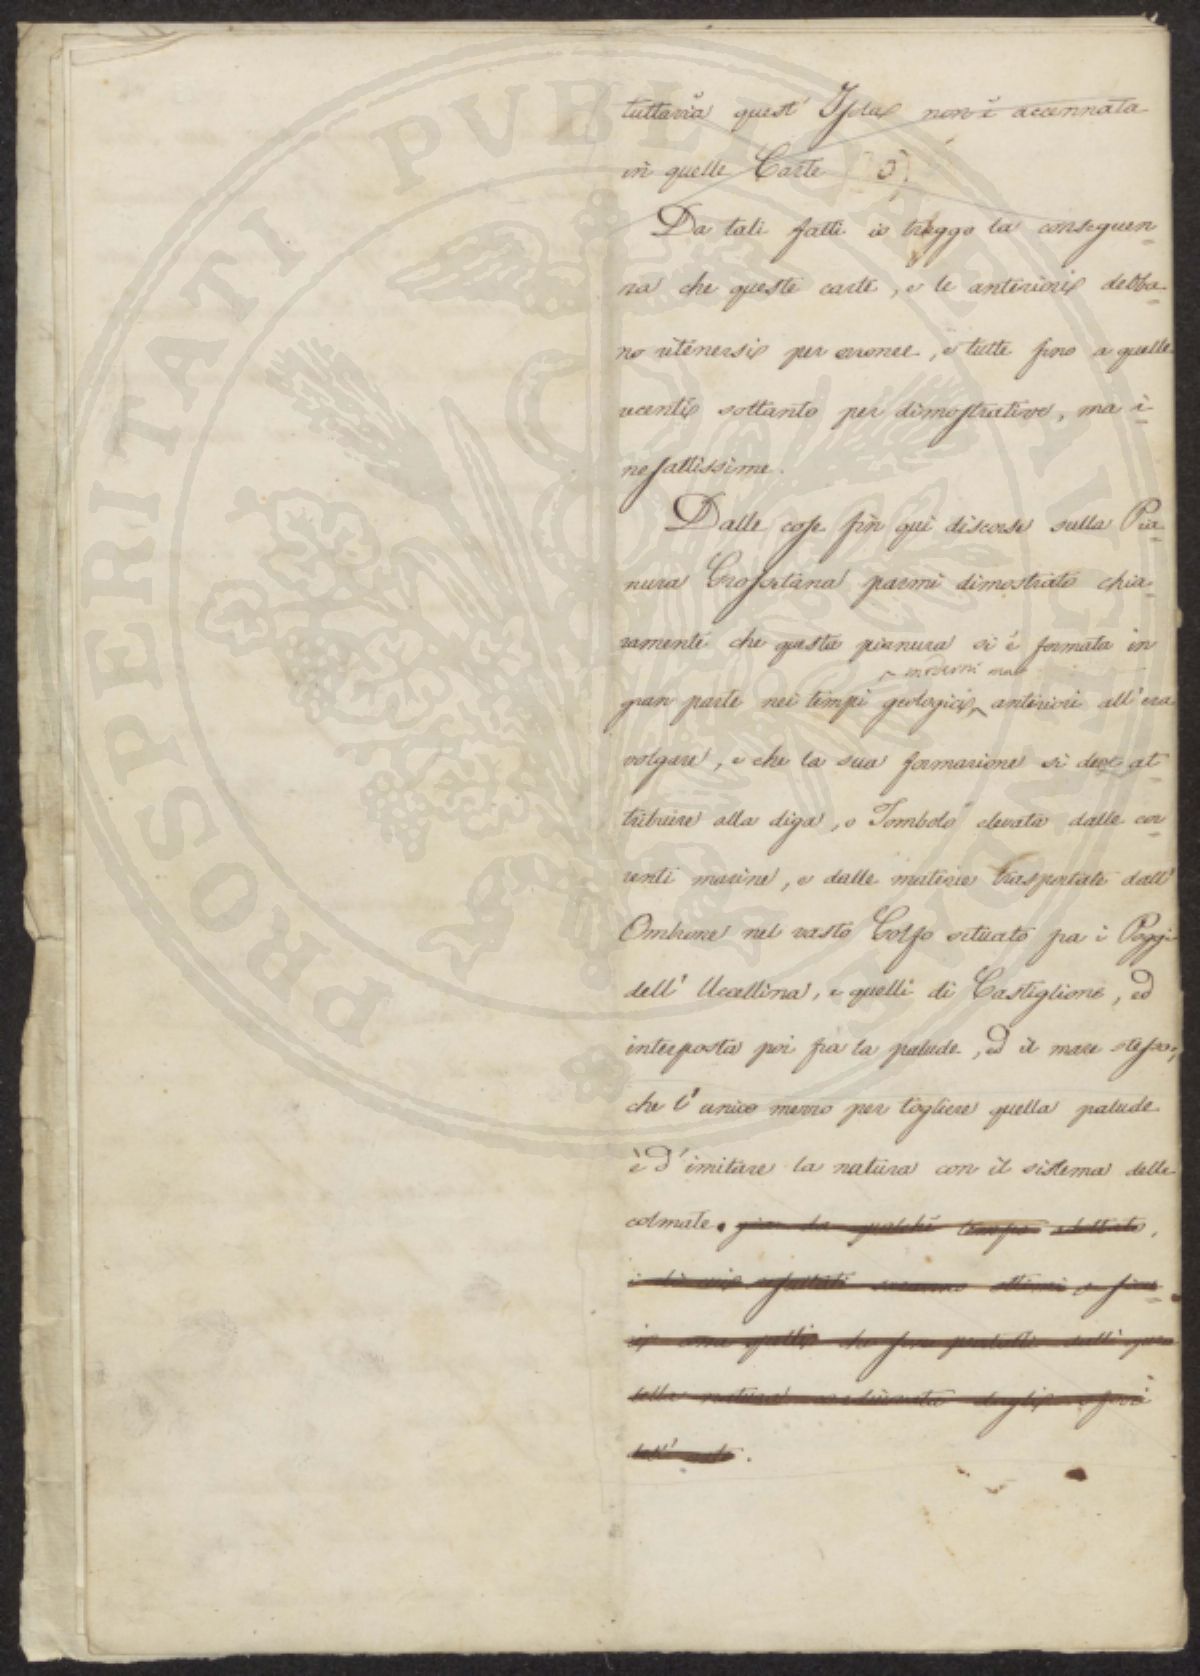 PROSPERITATI PUBLICAE AUGENDAE
tuttavia quest' Isola non è accennata
in quelle Carte (5)
Da tali fatti io traggo la conseguen-
za che queste carte, e le anteriori debba-
no ritenersi per erronee, e tutte fino a quelle
recenti soltanto per dimostrative, ma i-
nesattissime.
Dalle cose fin qui discorse sulla Pia-
nura Grossetana parmi dimostrato chia-
ramente che questa pianura si è formata in
moderni ma
gran parte nei tempi geologici anteriori all'era
volgare, e che la sua formazione si deve at-
tribuire alla diga, o Tombolo elevata dalle cor-
renti marine, e dalle materie trasportate dall'
Ombrone nel vasto Golfo situato fra i Poggi
dell' Uccellina, e quelli di Castiglione, ed
interposta poi fra la palude, ed il mare stesso;
che l'unico mezzo per togliere quella palude
è d'imitare la natura con il sistema delle
colmate. già da tempo adottato,
i di cui resultati saranno ottimi e
come quelli che
dalla natura
dell'arte.